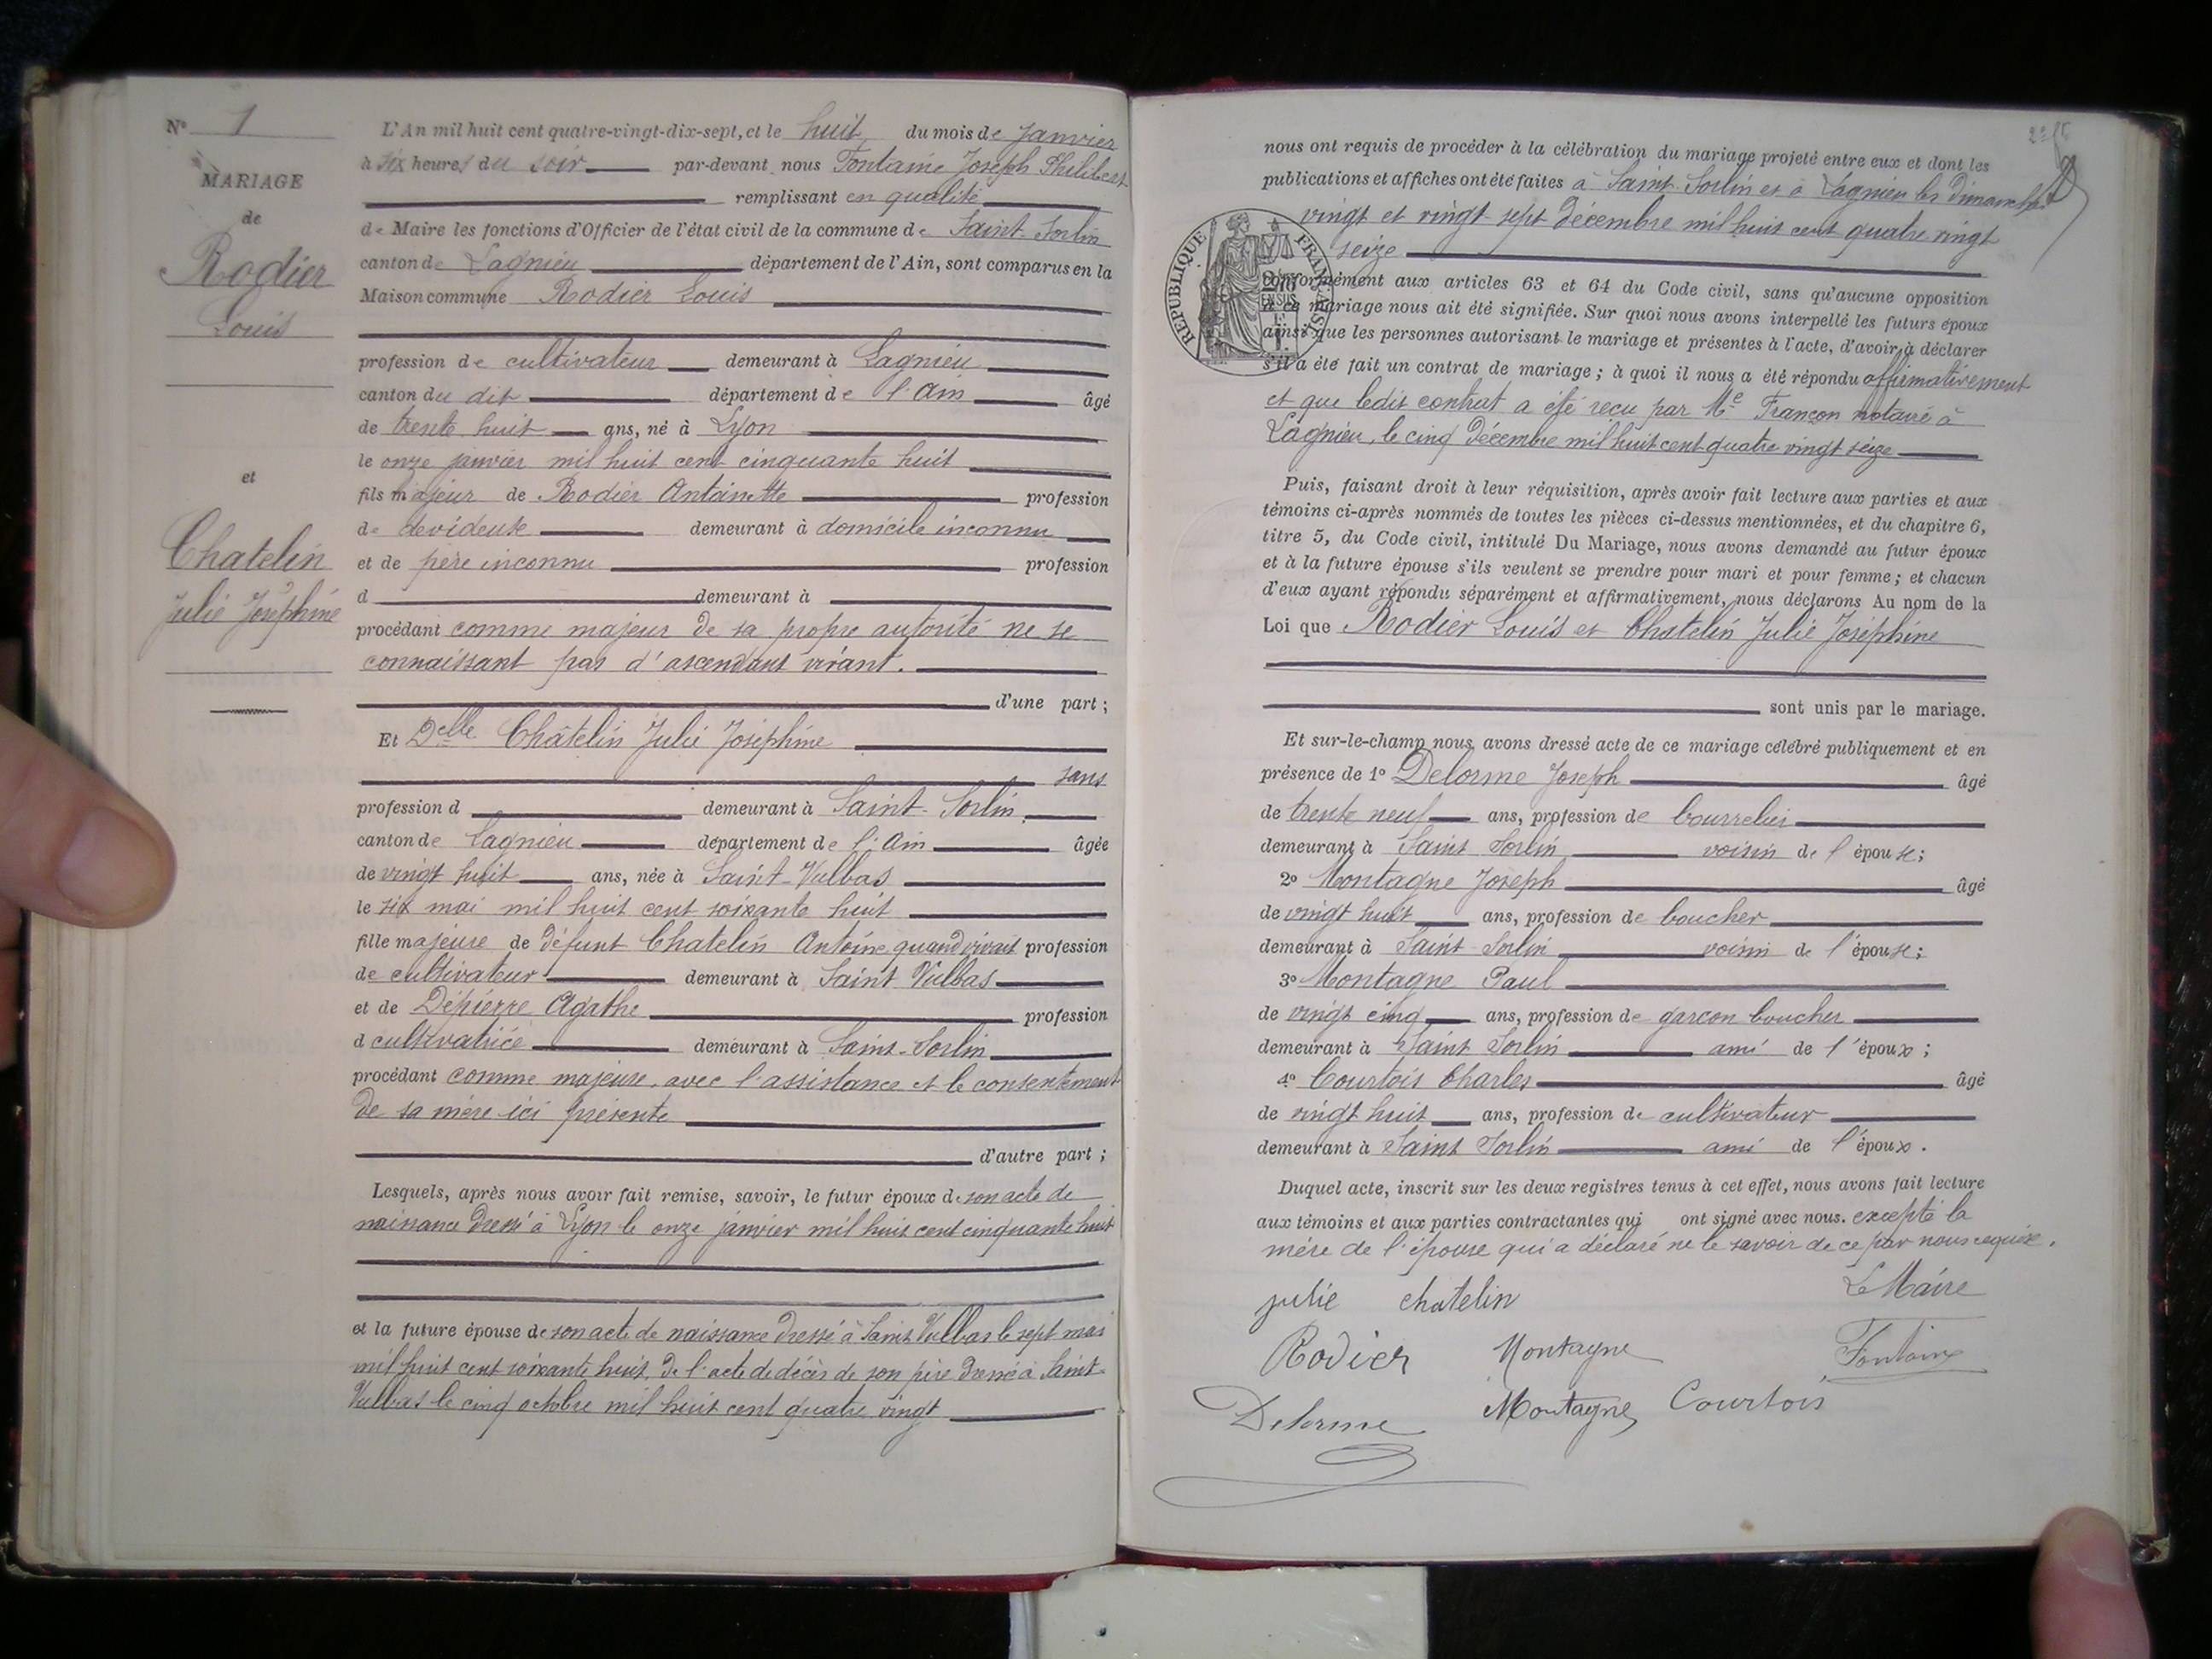 N° 1
MARIAGE
de
Rodier
Louis
et
Chatelin
Julie Joséphine
L'An mil huit cent quatre-vingt-dix-sept, et le huit du mois de Janvier
à six heures du soir par-devant nous Fontaine Joseph Philibert
remplissant en qualité
de Maire les fonctions d'Officier de l'état civil de la commune de Saint-Sorlin
canton de Lagnieu département de l'Ain, sont comparus en la
Maison commune Rodier Louis
profession de cultivateur demeurant à Lagnieu
canton du dit département de l'Ain âgé
de trente huit ans, né à Lyon
le onze janvier mil huit cent cinquante huit
fils majeur de Rodier Antoinette profession
de dévideuse demeurant à domicile inconnu
et de père inconnu profession
d demeurant à
procédant comme majeur de sa propre autorité ne se
connaissant pas d'ascendant vivant.
d'une part ;
Et Delle Châtelin Julie Joséphine
sans
profession d demeurant à Saint-Sorlin
canton de Lagnieu département de l'Ain âgée
de vingt huit ans, née à Saint-Vulbas
le six mai mil huit cent soixante huit
fille majeure de défunt Chatelin Antoine quand vivait profession
de cultivateur demeurant à Saint Vulbas
et de Dépierre Agathe profession
d cultivatrice demeurant à Saint-Sorlin
procédant comme majeure, avec l'assistance et le consentement
de sa mère ici présente
d'autre part ;
Lesquels, après nous avoir fait remise, savoir, le futur époux de son acte de
naissance dressé à Lyon le onze janvier mil huit cent cinquante huit
et la future épouse de son acte de naissance dressé à Saint Vulbas le sept mai
mil huit cent soixante huit, de l'acte de décès de son père dressé à Saint-
Vulbas le cinq octobre mil huit cent quatre vingt
nous ont requis de procéder à la célébration du mariage projeté entre eux et dont les
publications et affiches ont été faites à Saint-Sorlin et à Lagnieu les dimanches
vingt et vingt-sept décembre mil huit cent quatre vingt
seize
RÉPUBLIQUE FRANÇAISE
conformément aux articles 63 et 64 du Code civil, sans qu'aucune opposition
à ce mariage nous ait été signifiée. Sur quoi nous avons interpellé les futurs époux
ainsi que les personnes autorisant le mariage et présentes à l'acte, d'avoir à déclarer
s'il a été fait un contrat de mariage ; à quoi il nous a été répondu affirmativement
et que ledit contrat a été reçu par Me Françon notaire à
Lagnieu, le cinq décembre mil huit cent quatre vingt seize
Puis, faisant droit à leur réquisition, après avoir fait lecture aux parties et aux
témoins ci-après nommés de toutes les pièces ci-dessus mentionnées, et du chapitre 6,
titre 5, du Code civil, intitulé Du Mariage, nous avons demandé au futur époux
et à la future épouse s'ils veulent se prendre pour mari et pour femme ; et chacun
d'eux ayant répondu séparément et affirmativement, nous déclarons Au nom de la
Loi que Rodier Louis et Chatelin Julie Joséphine
sont unis par le mariage.
Et sur-le-champ nous avons dressé acte de ce mariage célébré publiquement et en
présence de 1° Delorme Joseph âgé
de trente neuf ans, profession de bourrelier
demeurant à Saint Sorlin voisin de l'épouse ;
2° Montagne Joseph âgé
de vingt huit ans, profession de boucher
demeurant à Saint Sorlin voisin de l'épouse ;
3° Montagne Paul
de vingt cinq ans, profession de garçon boucher
demeurant à Saint Sorlin ami de l'époux ;
4° Courtois Charles âgé
de vingt huit ans, profession de cultivateur
demeurant à Saint Sorlin ami de l'époux.
Duquel acte, inscrit sur les deux registres tenus à cet effet, nous avons fait lecture
aux témoins et aux parties contractantes qui ont signé avec nous. excepté la
mère de l'épouse qui a déclaré ne le savoir de ce par nous requise.
julie chatelin Le Maire
Rodier Montagne Fontaine
Delorme Montagne Courtois